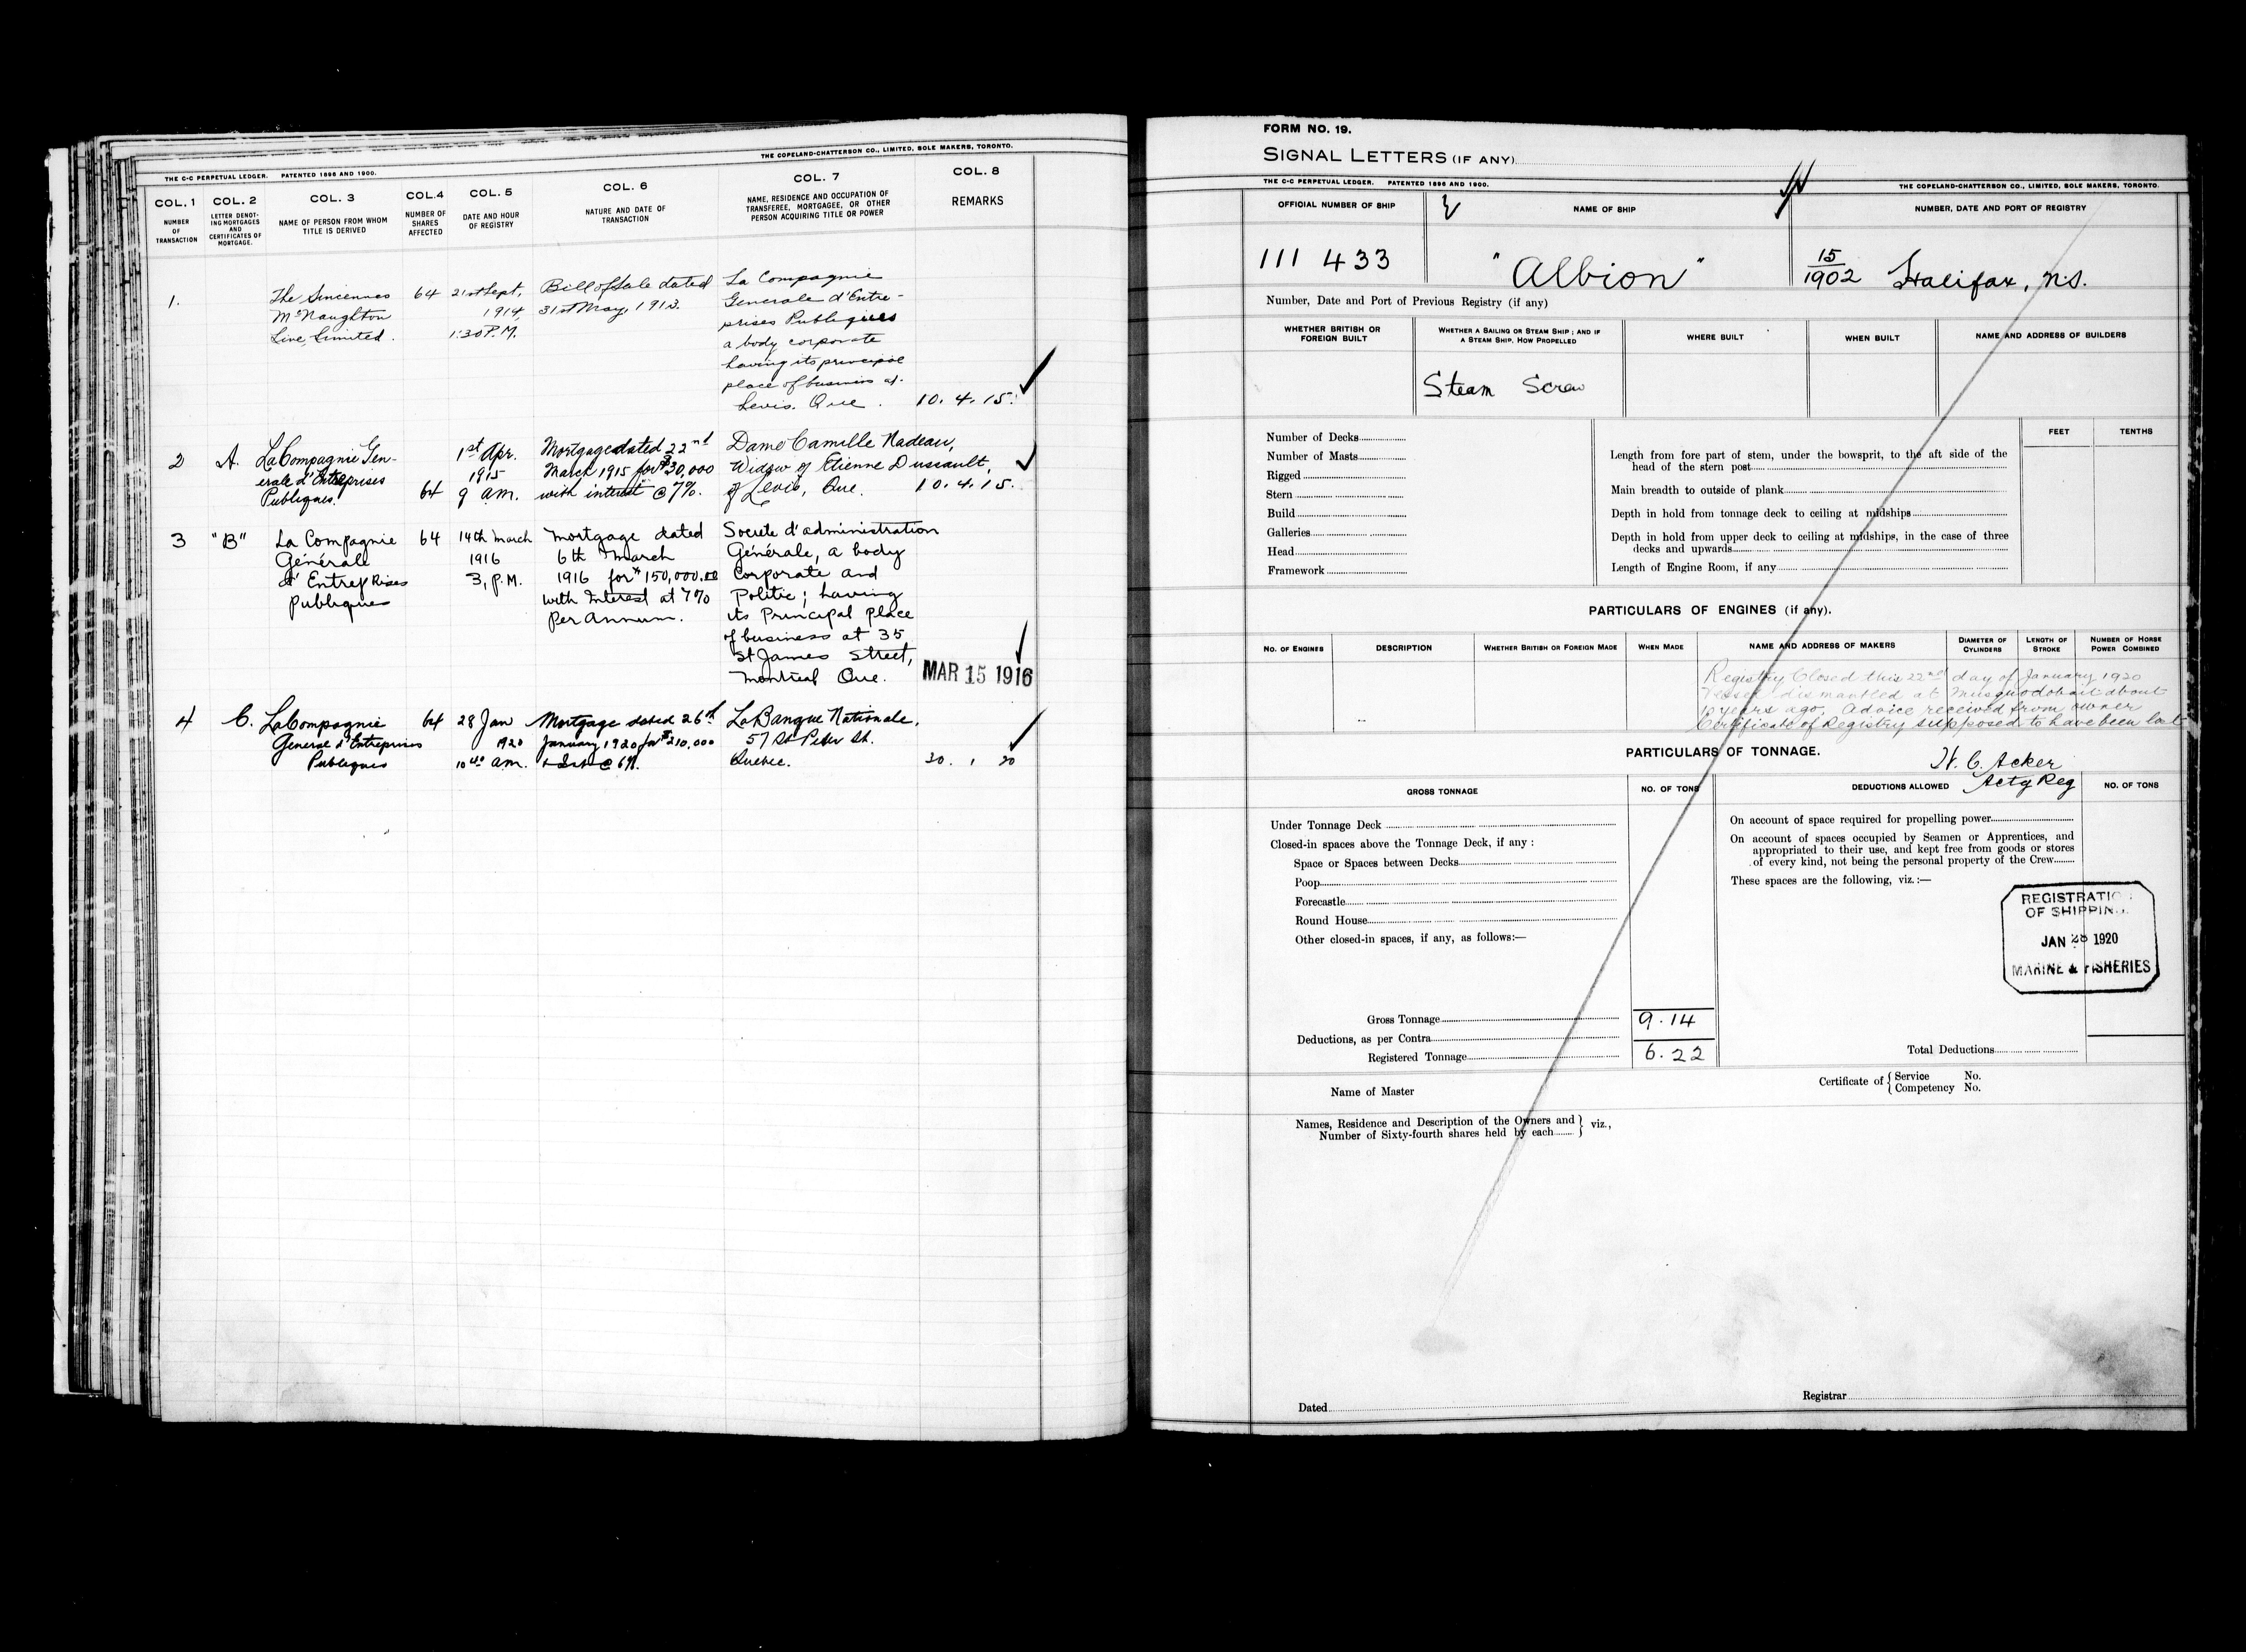 THE C-C PERPETUAL LEDGER. PATENTED 1896 AND 1900. THE COPELAND-CHATTERSON CO., LIMITED, SOLE MAKERS, TORONTO.
COL. 1 COL. 2 COL. 3 COL. 4 COL. 5 COL. 6 COL. 7 COL. 8
NUMBER OF TRANSACTION
LETTER DENOTING MORTGAGES AND CERTIFICATES OF MORTGAGE.
NAME OF PERSON FROM WHOM TITLE IS DERIVED
NUMBER OF SHARES AFFECTED
DATE AND HOUR OF REGISTRY
NATURE AND DATE OF TRANSACTION
NAME, RESIDENCE AND OCCUPATION OF TRANSFEREE, MORTGAGEE, OR OTHER PERSON ACQUIRING TITLE OR POWER
REMARKS
1.
The Sincennes
McNaughton
Line, Limited.
64
21st Sept,
1914,
1:30 P.M.
Bill of Sale dated
31st May, 1913.
La Compagnie
Generale d'Entre-
prises Publiques
a body corporate
having its principal
place of business at
Levis. Que.
10.4.15.
2
A.
La Compagnie Gen-
erale d'Entreprises
Publiques.
64
1st Apr.
1915
9 a.m.
Mortgage dated 22nd
March 1915 for $30,000
with interest @ 7%.
Dame Camille Nadeau,
Widow of Etienne Dussault,
of Levis, Que.
10.4.15.
3
"B"
La Compagnie
Générale
d'Entreprises
Publiques
64
14th March
1916
3, P.M.
Mortgage dated
6th March
1916 for $150,000.00
with Interest at 7%
Per Annum.
Societe d'administration
Générale, a body
Corporate and
Politic; having
its Principal place
of business at 35
St James Street,
Montreal Que.
MAR 15 1916
4
C.
La Compagnie
General d'Entreprises
Publiques
64
28 Jan
1920
10 a.m.
Mortgage dated 26th
January 1920 for $210,000
+ Int @ 6%.
La Banque Nationale,
57 St Peter St.
Quebec.
30. 1 20
FORM NO. 19.
SIGNAL LETTERS (IF ANY)
THE C-C PERPETUAL LEDGER. PATENTED 1896 AND 1900. THE COPELAND-CHATTERSON CO., LIMITED, SOLE MAKERS, TORONTO.
OFFICIAL NUMBER OF SHIP NAME OF SHIP NUMBER, DATE AND PORT OF REGISTRY
111 433 "Albion" 15/1902 Halifax, N.S.
Number, Date and Port of Previous Registry (if any)
WHETHER BRITISH OR FOREIGN BUILT
WHETHER A SAILING OR STEAM SHIP; AND IF A STEAM SHIP, HOW PROPELLED
WHERE BUILT
WHEN BUILT
NAME AND ADDRESS OF BUILDERS
Steam Screw
FEET TENTHS
Number of Decks
Number of Masts
Rigged
Stern
Build
Galleries
Head
Framework
Length from fore part of stem, under the bowsprit, to the aft side of the
head of the stern post
Main breadth to outside of plank
Depth in hold from tonnage deck to ceiling at midships
Depth in hold from upper deck to ceiling at midships, in the case of three
decks and upwards
Length of Engine Room, if any
PARTICULARS OF ENGINES (if any).
NO. OF ENGINES
DESCRIPTION
WHETHER BRITISH OR FOREIGN MADE
WHEN MADE
NAME AND ADDRESS OF MAKERS
DIAMETER OF CYLINDERS
LENGTH OF STROKE
NUMBER OF HORSE POWER COMBINED
Registry Closed this 22nd day of January 1920
Vessel dismantled at Musquodoboit about
10 years ago. Advice received from owner
Certificate of Registry supposed to have been lost
PARTICULARS OF TONNAGE.
H. C. Acker
Actg Reg
GROSS TONNAGE NO. OF TONS DEDUCTIONS ALLOWED NO. OF TONS
Under Tonnage Deck
Closed-in spaces above the Tonnage Deck, if any :
Space or Spaces between Decks
Poop
Forecastle
Round House
Other closed-in spaces, if any, as follows:—
On account of space required for propelling power
On account of spaces occupied by Seamen or Apprentices, and
appropriated to their use, and kept free from goods or stores
of every kind, not being the personal property of the Crew
These spaces are the following, viz.:—
REGISTRATION
OF SHIPPING
JAN 1920
MARINE & FISHERIES
Gross Tonnage 9.14
Deductions, as per Contra
Registered Tonnage 6.22
Total Deductions
Name of Master
Certificate of { Service No.
Competency No.
Names, Residence and Description of the Owners and
Number of Sixty-fourth shares held by each } viz.,
Dated
Registrar